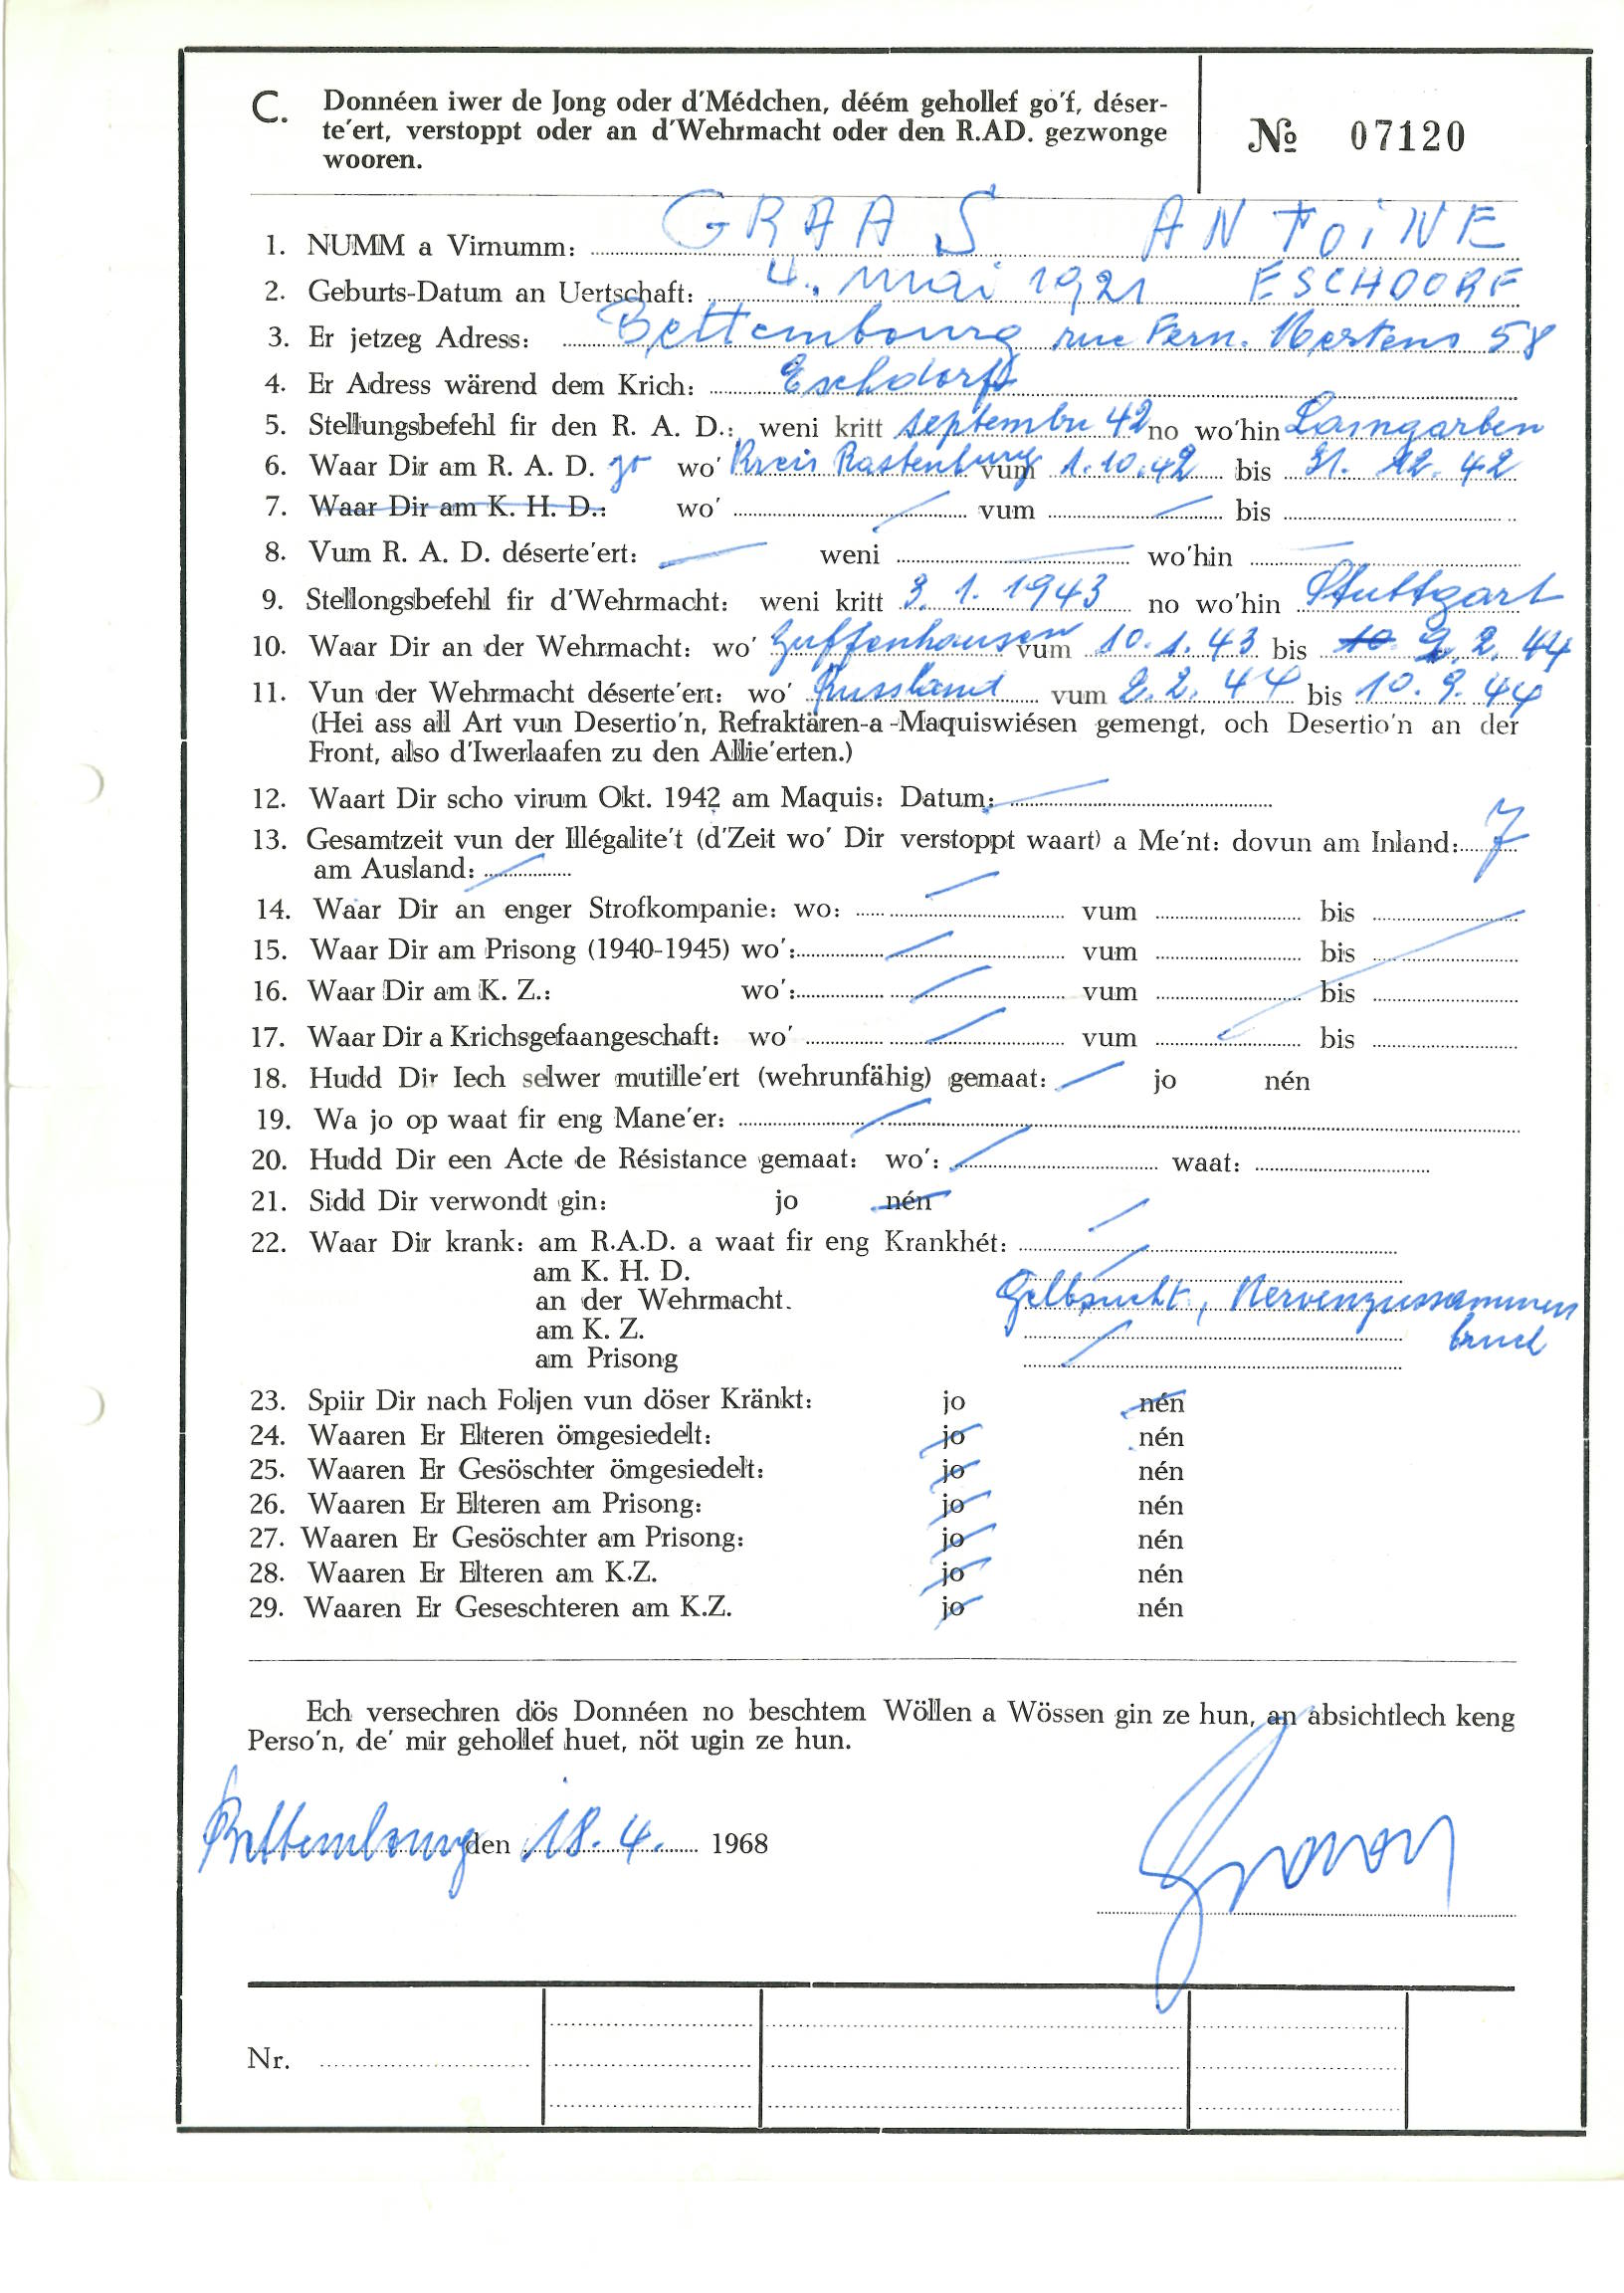 C. Donnéen iwer de Jong oder d'Médchen, déém gehollef go'f, déser-
te'ert, verstoppt oder an d'Wehrmacht oder den R.AD. gezwonge
wooren.
№ 07120
1. NUMM a Virnumm: GRAAS ANTOINE
2. Geburts-Datum an Uertschaft: 4. Mai 1921 ESCHDORF
3. Er jetzeg Adress: Bettembourg rue Fern. Mertens 58
4. Er Adress wärend dem Krich: Eschdorf
5. Stellungsbefehl fir den R. A. D.: weni kritt septembre 42 no wo'hin Lamgarben
6. Waar Dir am R. A. D. jo wo' Kreis Rastenburg vum 1.10.42 bis 31. 12. 42
7. Waar Dir am K. H. D.: wo' vum bis
8. Vum R. A. D. déserte'ert: weni wo'hin
9. Stellongsbefehl fir d'Wehrmacht: weni kritt 3. 1. 1943 no wo'hin Stuttgart
10. Waar Dir an der Wehrmacht: wo' Zuffenhausen vum 10. 1. 43 bis 10. 2. 2. 44
11. Vun der Wehrmacht déserte'ert: wo' Russland vum 2.2. 44 bis 10. 9. 44
(Hei ass all Art vun Desertio'n, Refraktären-a -Maquiswiésen gemengt, och Desertio'n an der
Front, also d'Iwerlaafen zu den Allie'erten.)
12. Waart Dir scho virum Okt. 1942 am Maquis: Datum:
13. Gesamtzeit vun der Illégalite't (d'Zeit wo' Dir verstoppt waart) a Me'nt: dovun am Inland: 7
am Ausland:
14. Waar Dir an enger Strofkompanie: wo: vum bis
15. Waar Dir am Prisong (1940-1945) wo': vum bis
16. Waar Dir am K. Z.: wo': vum bis
17. Waar Dir a Krichsgefaangeschaft: wo' vum bis
18. Hudd Dir Iech selwer mutille'ert (wehrunfähig) gemaat: jo nén
19. Wa jo op waat fir eng Mane'er:
20. Hudd Dir een Acte de Résistance gemaat: wo': waat:
21. Sidd Dir verwondt gin: jo nén
22. Waar Dir krank: am R.A.D. a waat fir eng Krankhét:
am K. H. D.
an der Wehrmacht. Gelbsucht, Nervenzusammen
am K. Z. bruch
am Prisong
23. Spiir Dir nach Foljen vun döser Kränkt: jo nén
24. Waaren Er Elteren ömgesiedelt: jo nén
25. Waaren Er Gesöschter ömgesiedelt: jo nén
26. Waaren Er Elteren am Prisong: jo nén
27. Waaren Er Gesöschter am Prisong: jo nén
28. Waaren Er Elteren am K.Z. jo nén
29. Waaren Er Geseschteren am K.Z. jo nén
Ech versechren dös Donnéen no beschtem Wöllen a Wössen gin ze hun, an absichtlech keng
Perso'n, de' mir gehollef huet, nöt ugin ze hun.
Bettembourg den 18. 4. 1968
Nr.